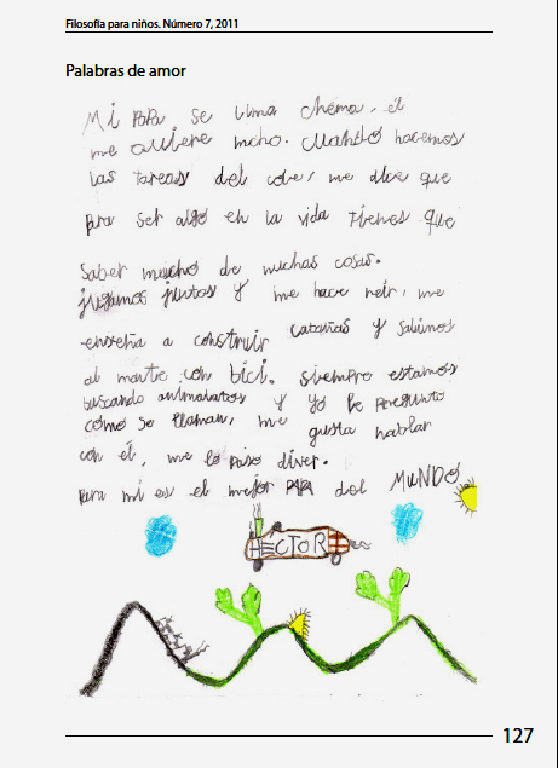 Filosofía para niños. Número 7, 2011
Palabras de amor
Mi PAPA se llma chema, él
me quiere mcho. Cuando hacemos
las tareas del cole, me dice que
para ser algo en la vida tienes que
saber mucho de muchas cosas.
jugamos juntos y me hace reír, me
enseña a construir cabañas y salimos
al monte con bici. siempre estamos
buscando animalatos y yo le pregunto
cómo se llaman, me gusta hablar
con él, me lo paso diver.
para mí es el mejor PAPA del MUNDO
HECTOR
127